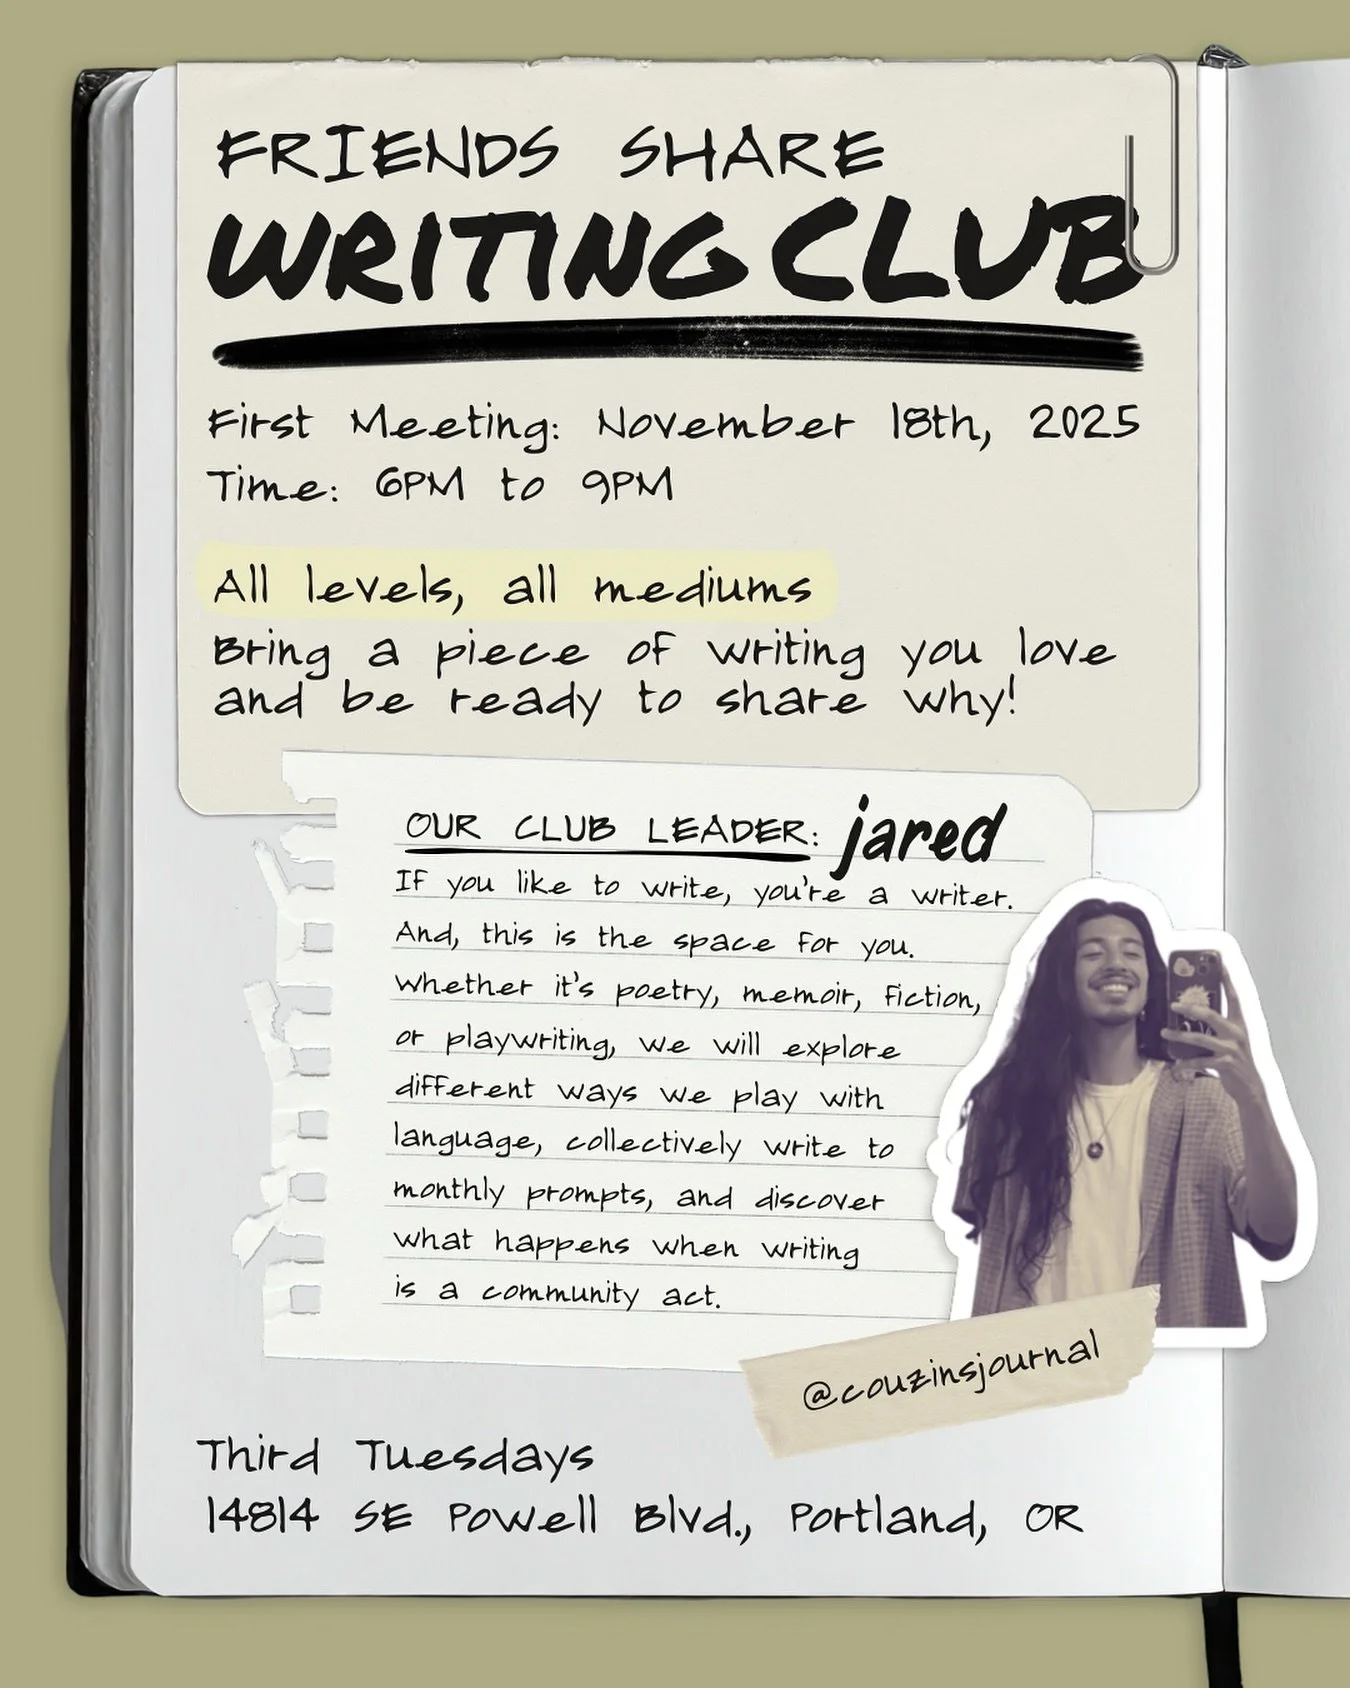 FRIENDS SHARE
WRITING CLUB
First Meeting: November 18th, 2025
Time: 6PM to 9PM
All levels, all mediums
Bring a piece of writing you love
and be ready to share why!
OUR CLUB LEADER: jared
If you like to write, you're a writer.
And, this is the space for you.
Whether it's poetry, memoir, fiction,
or playwriting, we will explore
different ways we play with
language, collectively write to
monthly prompts, and discover
what happens when writing
is a community act.
@couzinsjournal
Third Tuesdays
14814 SE Powell Blvd., Portland, OR